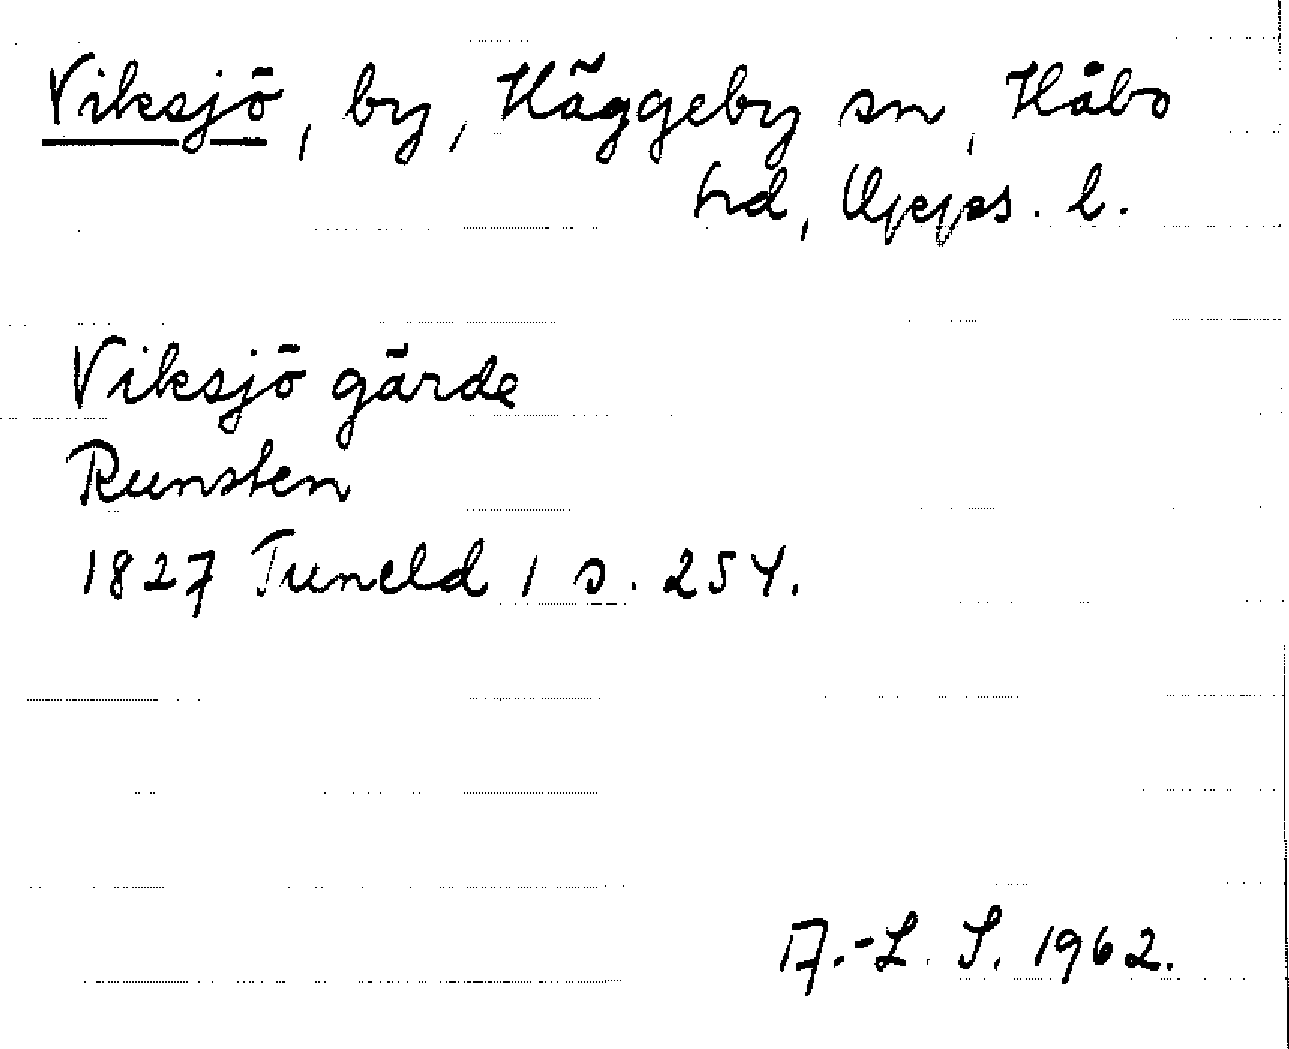 Viksjö, by, Häggeby sn, Håbo
hd, Upps. l.
Viksjö gärde
Runsten
1827 Tuneld 1 s. 254.
A.-L. S. 1962.